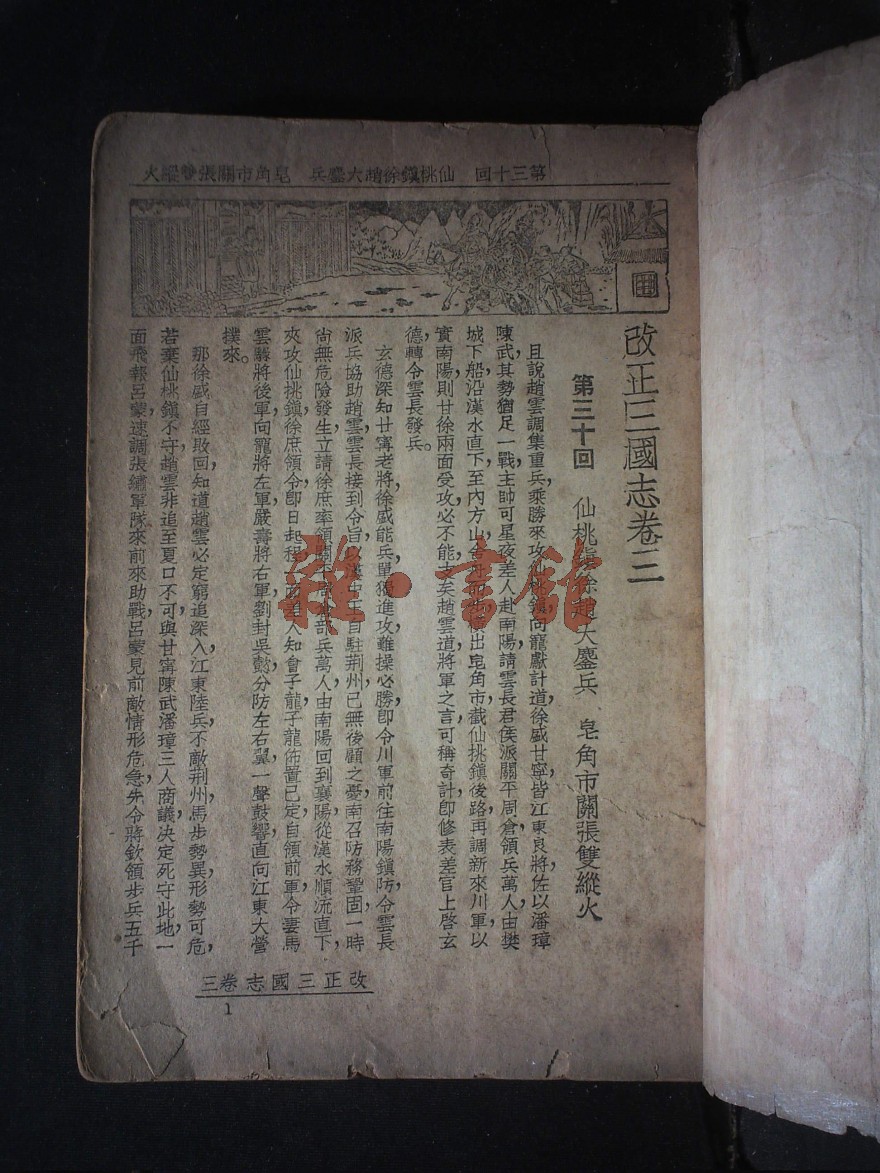 第三十回　仙桃鎭徐趙大鏖兵　皂角市關張雙縱火
改正三國志卷三
第三十回　仙桃鎭徐趙大鏖兵　皂角市關張雙縱火
且說趙雲調集重兵乘勝來攻仙桃鎭向寵獻計道徐盛甘寧皆江東良將佐以潘璋
陳武其勢猶足一戰主帥可星夜差人赴南陽請雲長君侯派關平周倉領兵萬人由樊
城下船沿漢水直下至內方山舍舟而步橫出皂角市截仙桃鎭後路再調新來川軍以
實南陽則甘徐兩面受攻必不能支矣趙雲道將軍之言可稱奇計卽修表差官上啓玄
德轉令雲長發兵。
玄德深知甘寧老將徐盛能兵單獨進攻難操必勝卽令川軍前往南陽鎭防令雲長
派兵協助趙雲雲長接到令旨以漢中王自駐荆州已無後顧之憂南召防務鞏固一時
尙無危險發生立請徐庶率領關平周倉部兵萬人由南陽回到襄陽從漢水順流直下，
夾攻仙挑鎭徐庶領令卽日起程一面差人知會子龍子龍佈置已定自領前軍令妻馬
雲騄將後軍向寵將左軍嚴壽將右軍劉封吳懿分防左右翼一聲鼓響直向江東大營
撲來。
那徐盛自經敗回知道趙雲必定窮追深入江東陸兵不敵荆州馬步勢異形勢可危，
若棄仙桃鎭不守趙雲非追至夏口不可與甘寧陳武潘璋三人商議决定死守此地一
面飛報呂蒙速調張繡軍隊來前來助戰呂蒙見前敵情形危急先令蔣欽領步兵五千
改正三國志卷三
1
雜·書館